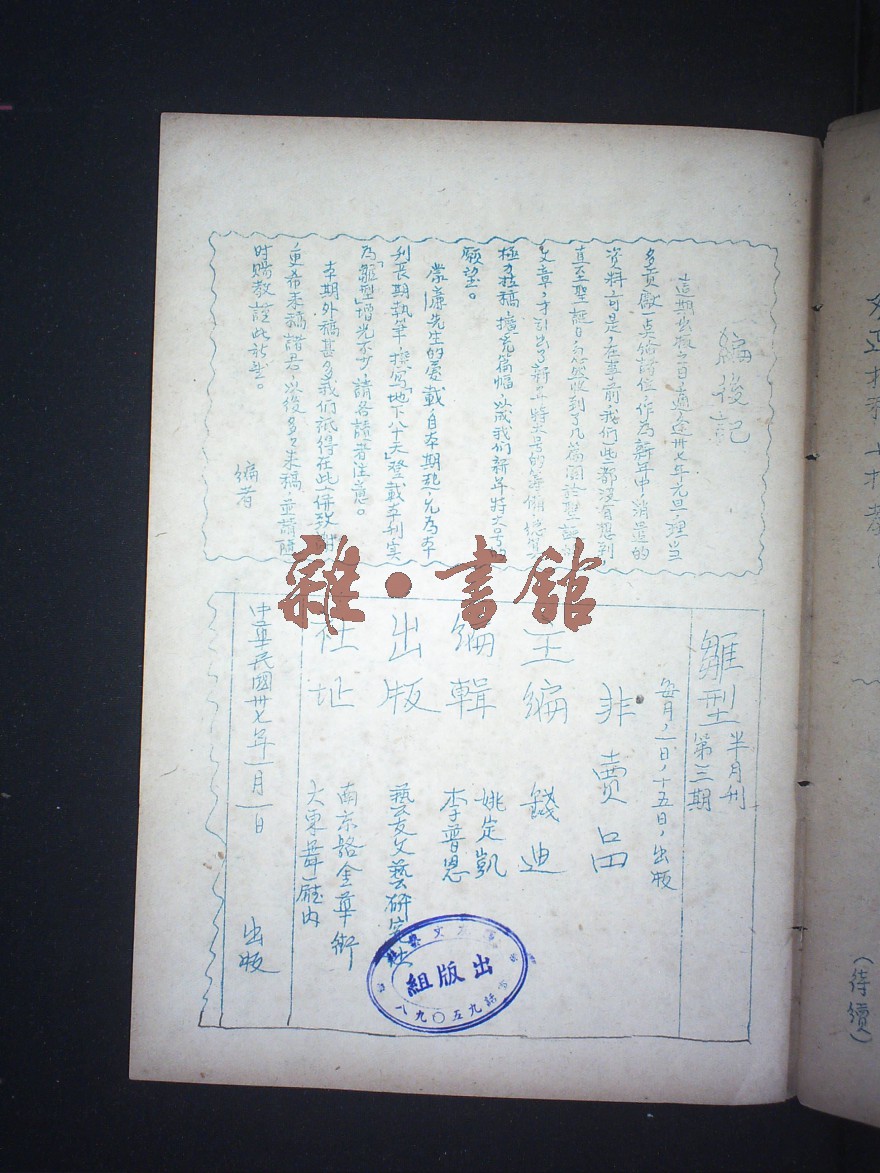 編後記
這期出版之日適逢卅七年元旦，理當
多貢獻一点給諸位，作為新年中，消遣的
資料，可是，在事前我們些都没有想到，
直至聖誕日，
極力拉稿，擴充篇幅，以成我們新年特大号
願望。
常濂先生的長載，自本期起，允為本
刊長期執筆，撰寫「地下八十天」登載本刊实
為「雛型」增光不少，請各讀者注意。
本期外稿甚多，我們祇得在此一併致謝，
並希來稿諸君，以後多々来稿，並請隨
时賜教
編者
雛型
半月刊
第三期
每月，一日，十五日，出版
非賣品
主編 錢迪
編輯 姚定凱
李普恩
出版 藝友文藝研究社
社址 南京路金華街
大東舞廳内
中華民國卅七年一月一日 出版
出版組
電話九五〇九八
雜·書館
（待續）